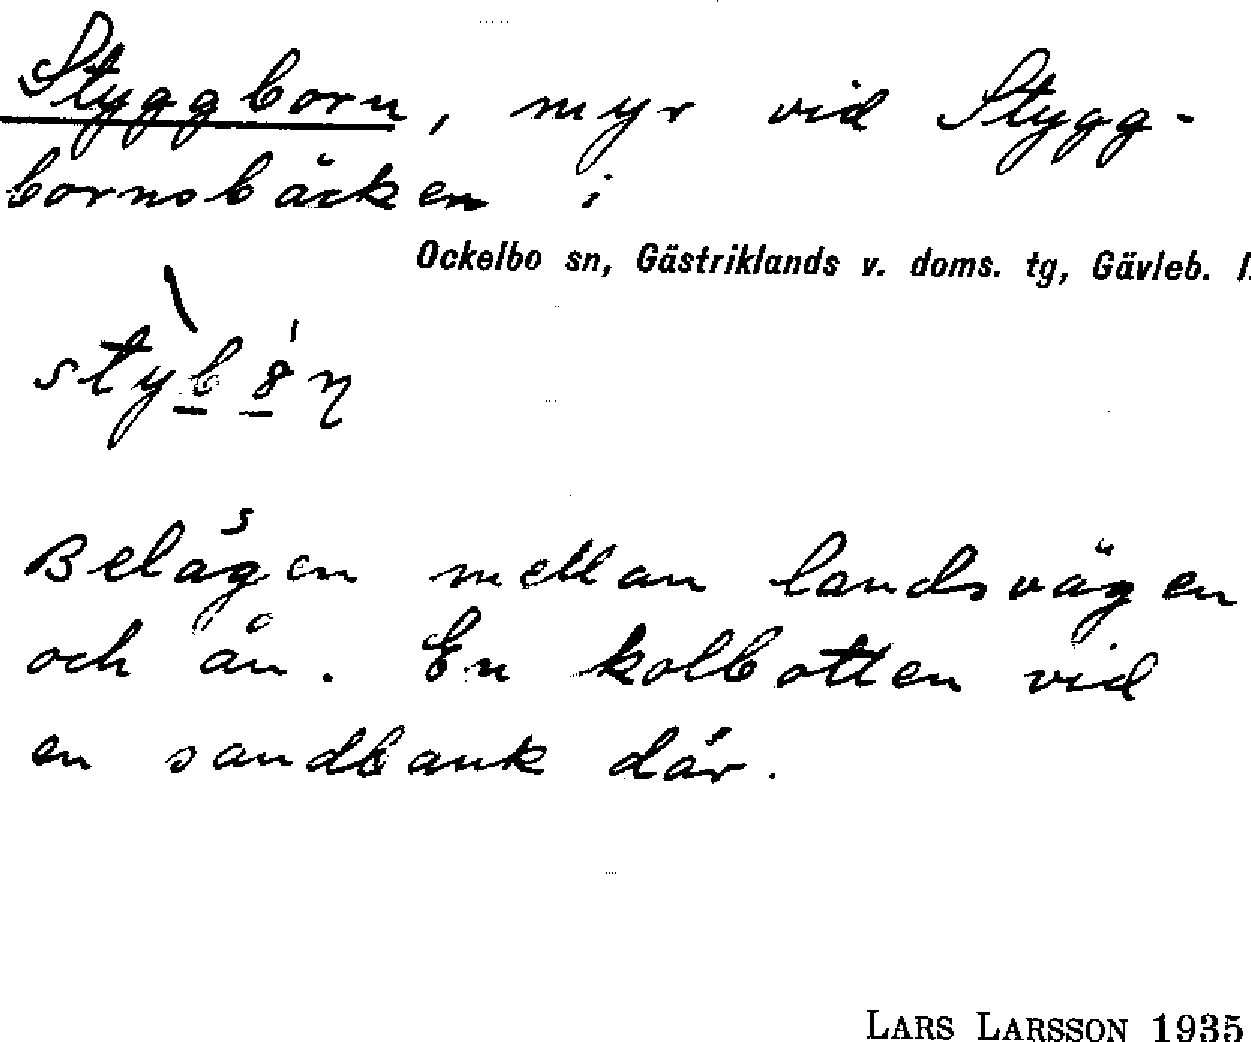 Styggborn, myr vid Stygg-
bornsbäcken i
Ockelbo sn, Gästriklands v. doms. tg, Gävleb. l.
Belägen mellan landsvägen
och ån. En kolbotten vid
en sandbank där.
LARS LARSSON 1935